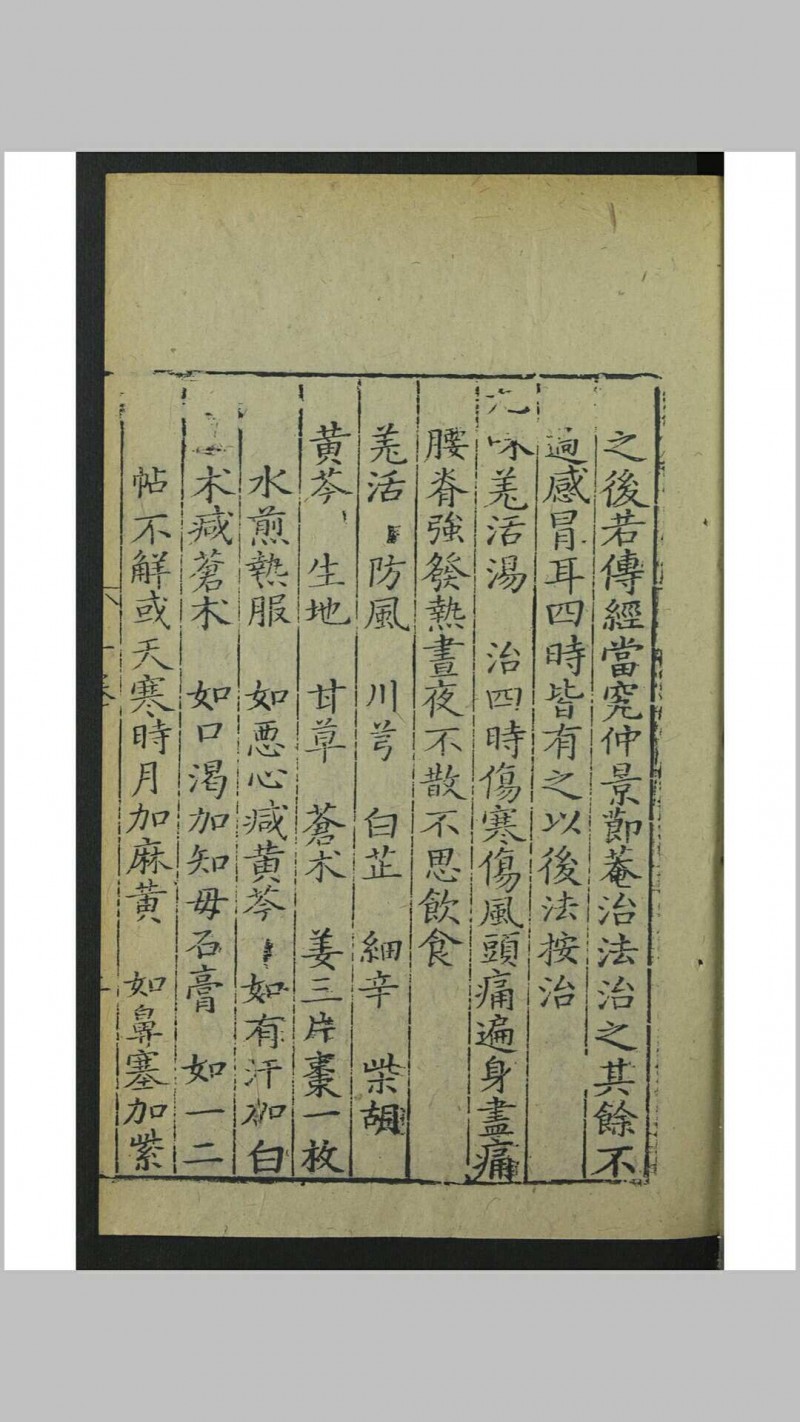 之後若傳經當究仲景節菴治法治之其餘不
過感冒耳四時皆有之以後法按治
九味羗活湯　治四時傷寒傷風頭痛遍身盡痛
腰脊強發熱晝夜不散不思飲食
羗活　防風　川芎　白芷　細辛　柴胡
黃芩　生地　甘草　蒼朮　姜三片棗一枚
水煎熱服　如惡心減黃芩　如有汗加白
朮减蒼朮　如口渴加知母石膏　如一二
帖不觧或天寒時月加麻黃　如鼻塞加紫